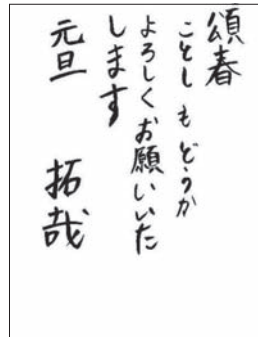 頌春
ことしもどうか
よろしくお願いいた
します
元旦 拓哉